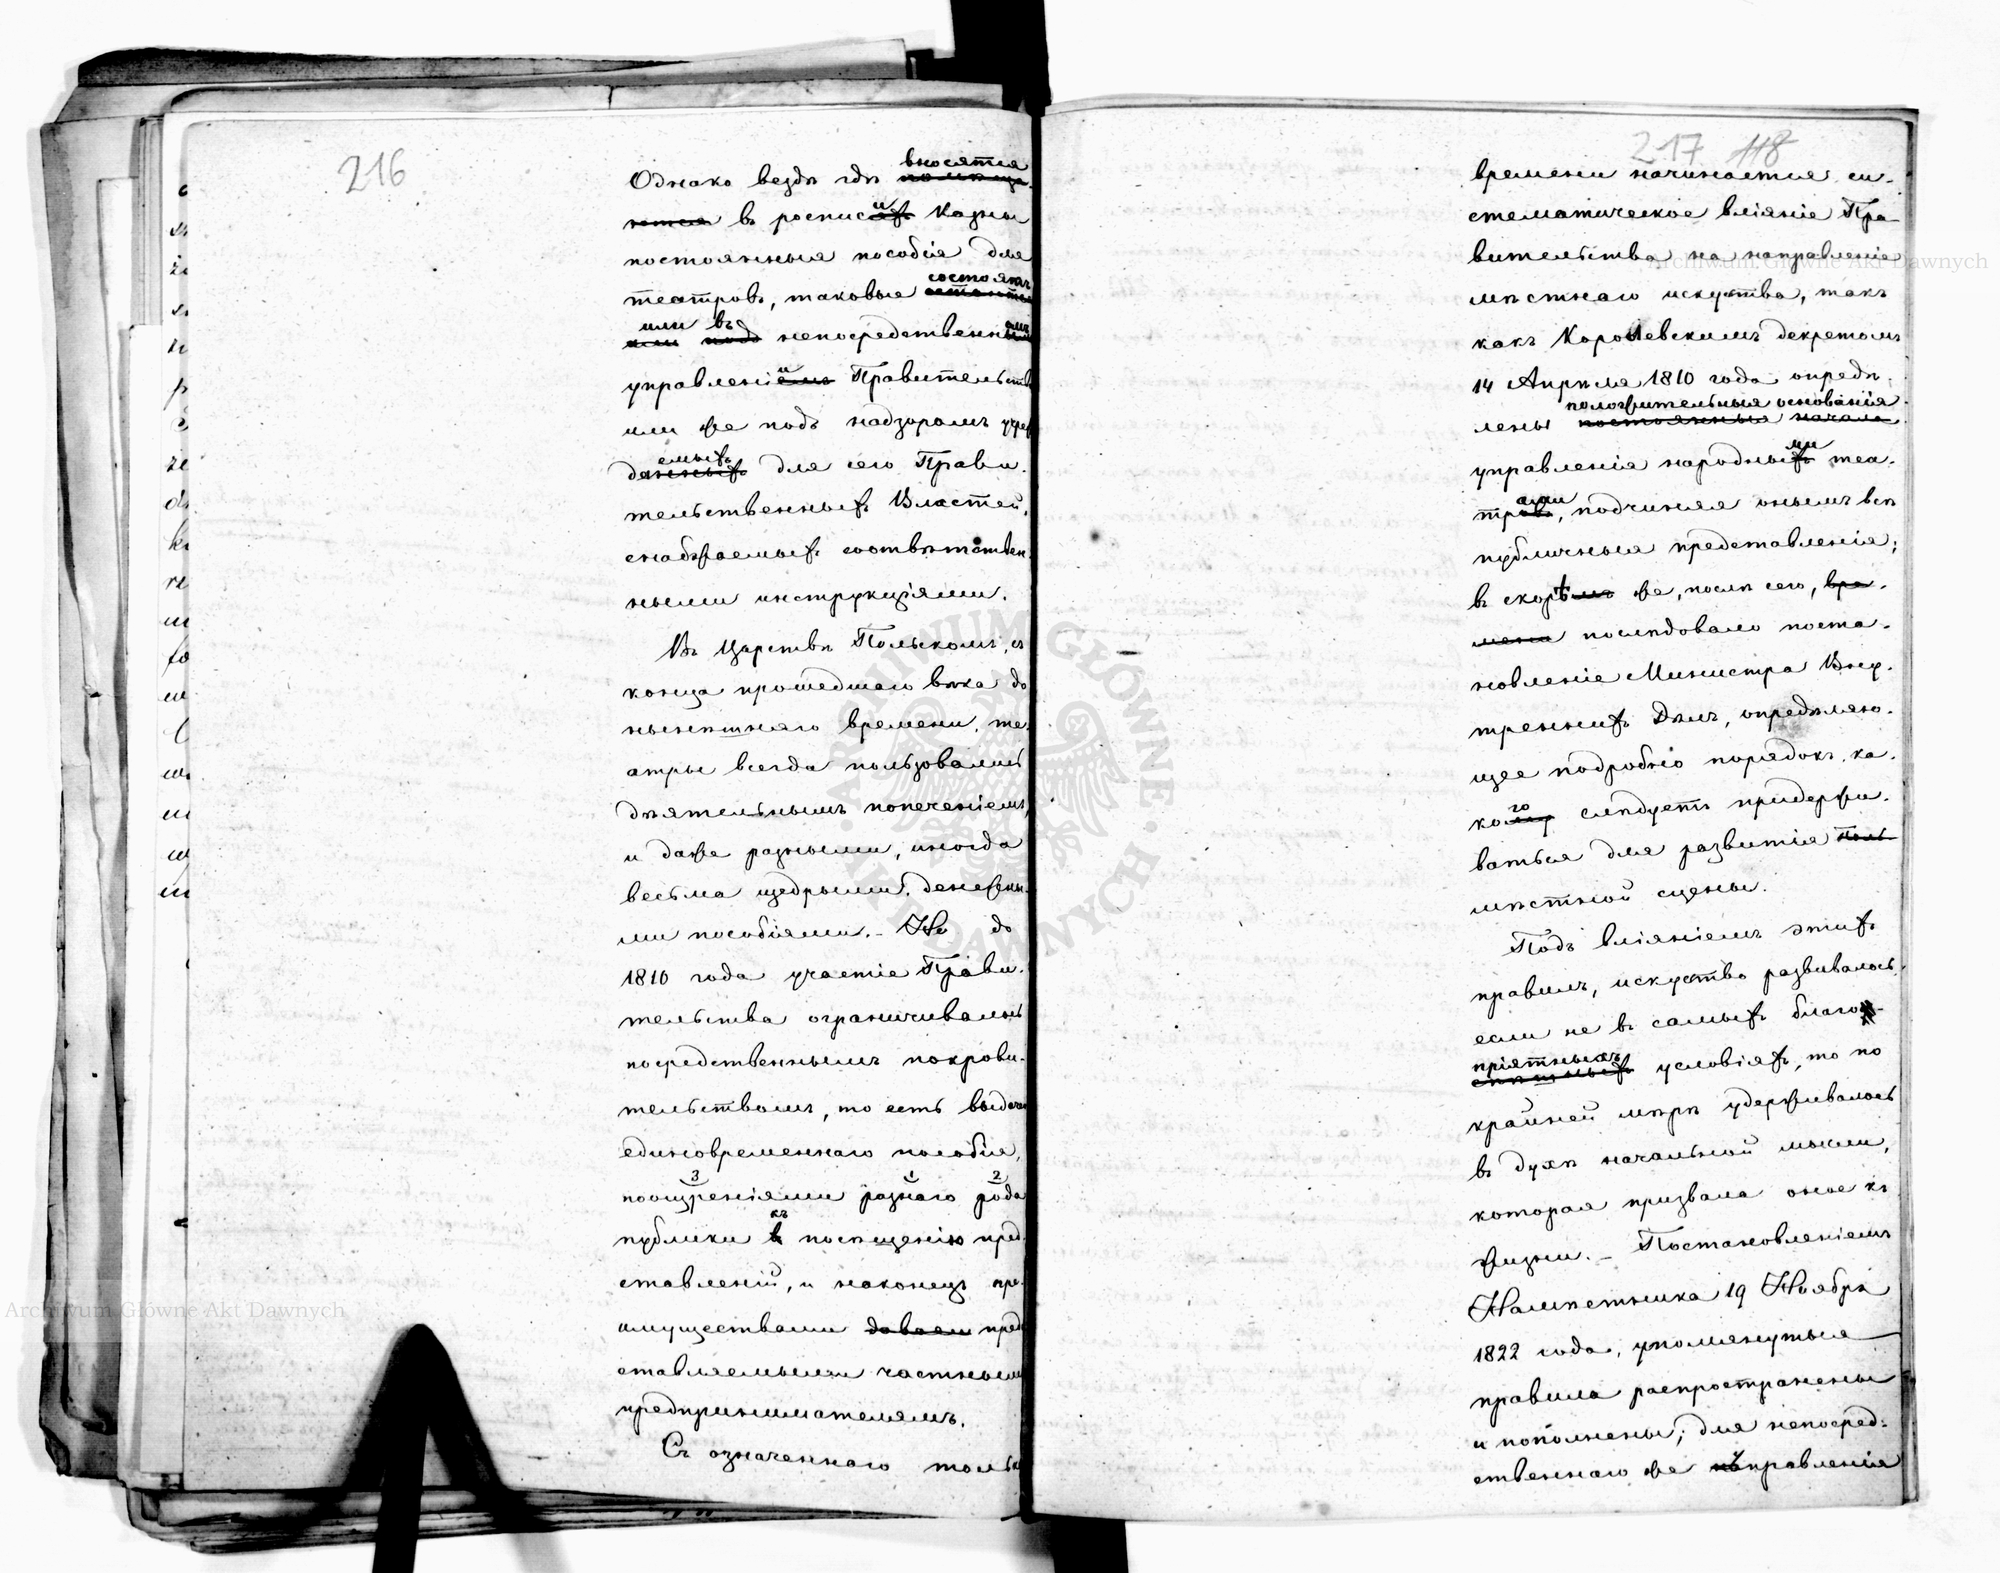 216
вносятся
Однако вездѣ гдѣ помѣща-
ются въ росписи Казны
постоянныя пособія для
состоятъ
театровъ, таковые
или въ
или подъ непосредственнымъ
управленіи Правительства
или же подъ надзоромъ учреж
емыхъ
данныхъ для сего Прави-
тельственныхъ Властей,
снабжаемыхъ соотвѣтствен-
ными инструкціями.
Въ Царствѣ Польскомъ, съ
конца прошедшаго вѣка до
нынѣшняго времени, те-
атры всегда пользовались
дѣятельнымъ попеченіемъ,
и даже разными, иногда
весьма щедрыми, денежны-
ми пособіями. – Но до
1810 года участіе Прави-
тельства ограничивалось
посредственнымъ покрови-
тельствомъ, то есть выдачею
единовременнаго пособія,
3 1 2
поощреніями разнаго рода
къ
публики в посѣщенію пред-
ставленій, и наконецъ пре-
имуществами даваем пред
ставляемыми частнымъ
предпринимателямъ.
Съ означеннаго только
217 118
времени начинается си-
стематическое вліяніе Пра-
вительства на направленіе
мѣстнаго искуства, такъ
какъ Королевскимъ декретомъ
14 Апрѣля 1810 года опредѣ-
положительныя основанія
лены постоянныя начала
ми
управленія народныхъ теа-
ами
тровъ, подчиняя онымъ всѣ
публичныя представленія;
въ скорѣ же, послѣ сего, вре-
мени послѣдовало поста-
новленіе Министра Вну-
треннихъ Дѣлъ, опредѣляю-
щее подробно порядокъ, ка-
го
кому слѣдуетъ придержи-
ваться для развитія поль
мѣстной сцены.
Подъ вліяніемъ этихъ
правилъ, искуство развивалось
если не въ самыхъ благо-
пріятныхъ
условіяхъ, то по
крайней мѣрѣ удерживалось
въ духѣ начальной мысли,
которая призвала оное къ
жизни. – Постановленіемъ
Намѣстника 19 Ноября
1822 года, упомянутыя
правила распространены
и пополнены; для непосред-
ственнаго же управленія
ARCHIWUM GŁÓWNE AKT DAWNYCH
Archiwum Główne Akt Dawnych
Archiwum Główne Akt Dawnych